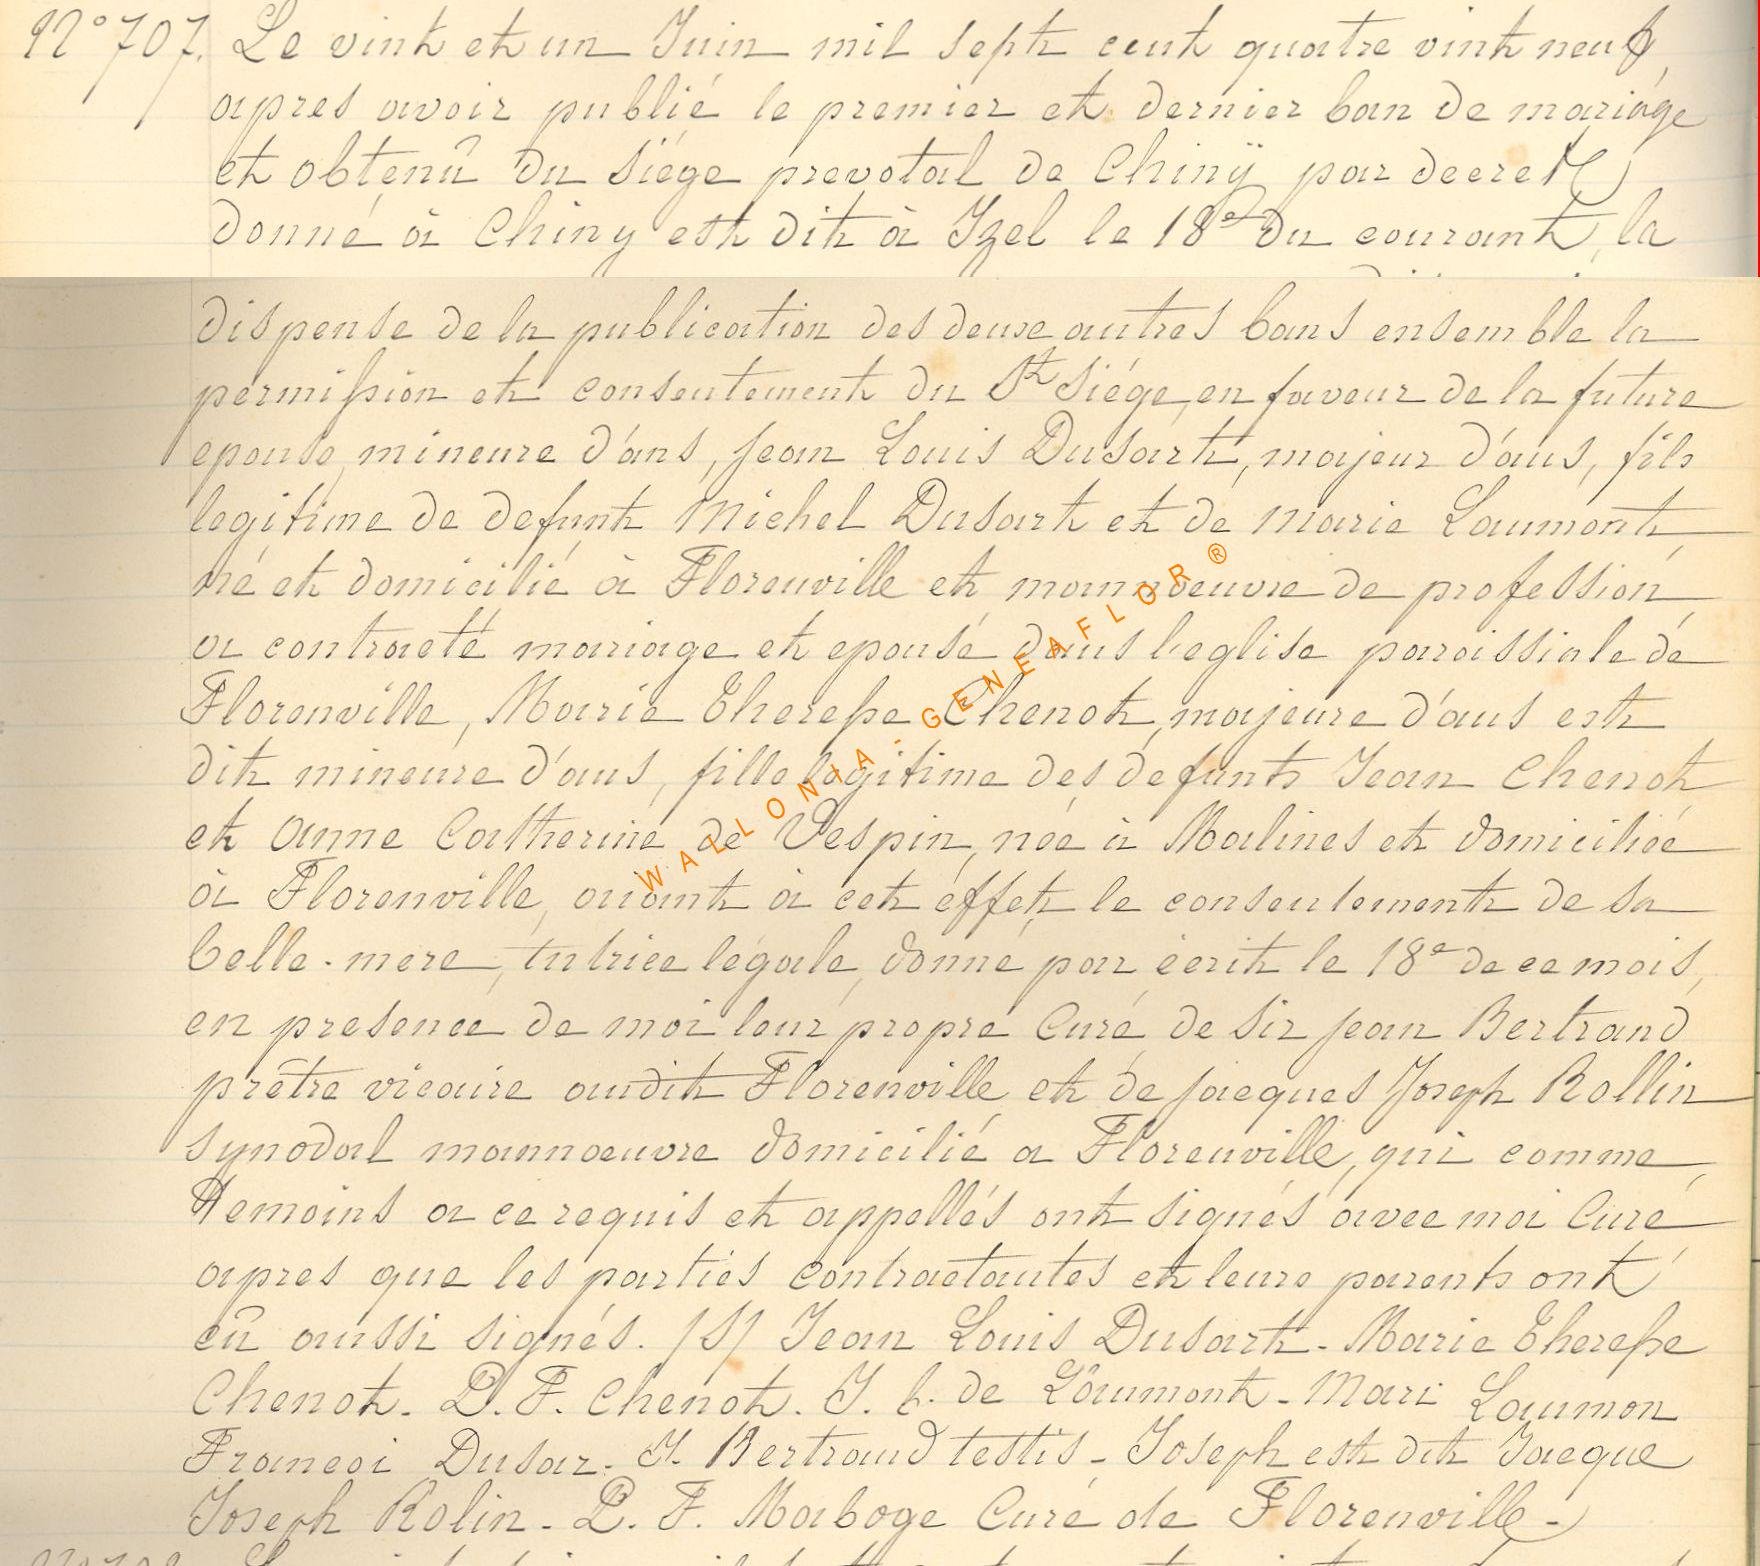 N° 707. Le vint et un Juin mil sept cent quatre vint neuf,
apres avoir publié le premier et dernier ban de mariage
et obtenû du siége prevotal de Chinÿ par decret
donné à Chiny est dit à Izel le 18e du courant, la
dispense de la publication des deux autres bans ensemble la
permission et consentement du St Siége, en faveur de la future
epouse, mineure d'ans, Jean Louis Dusart, majeur d'ans, fils
legitime de defunt Michel Dusart et de Marie Laumont,
né et domicilié à Florenville et mannoeuvre de profession,
a contracté mariage et epousé dans l'eglise paroissiale de
Florenville, Marie Therese Chenot, majeure d'ans est
dit mineure d'ans, fille legitime des defunts Jean Chenot
et Anne Catherine de Vespin, née à Malines et domiciliée
à Florenville, aiant à cet éffet, le consentement de sa
belle-mere, tutrice légale, donné par écrit le 18e de ce mois,
en presence de moi leur propre Curé de Sir Jean Bertrand
prêtre vicaire audit Florenville et de Jacques Joseph Rollin
synodal mannoeuvre domicilié a Florenville, qui comme
temoins a ce requis et appellés ont signés avec moi Curé
apres que les parties contractantes et leurs parents ont
eû aussi signés. /S/ Jean Louis Dusart - Marie Therese
Chenot. P. F. Chenot. J. b. de Laumont - Mari Laumon
Francoi Dusar. J. Bertrand testis - Joseph est dit Jacque
Joseph Rolin - P. F. Maboge Curé de Florenville -
WALLONIA - GENEAFLOR ®